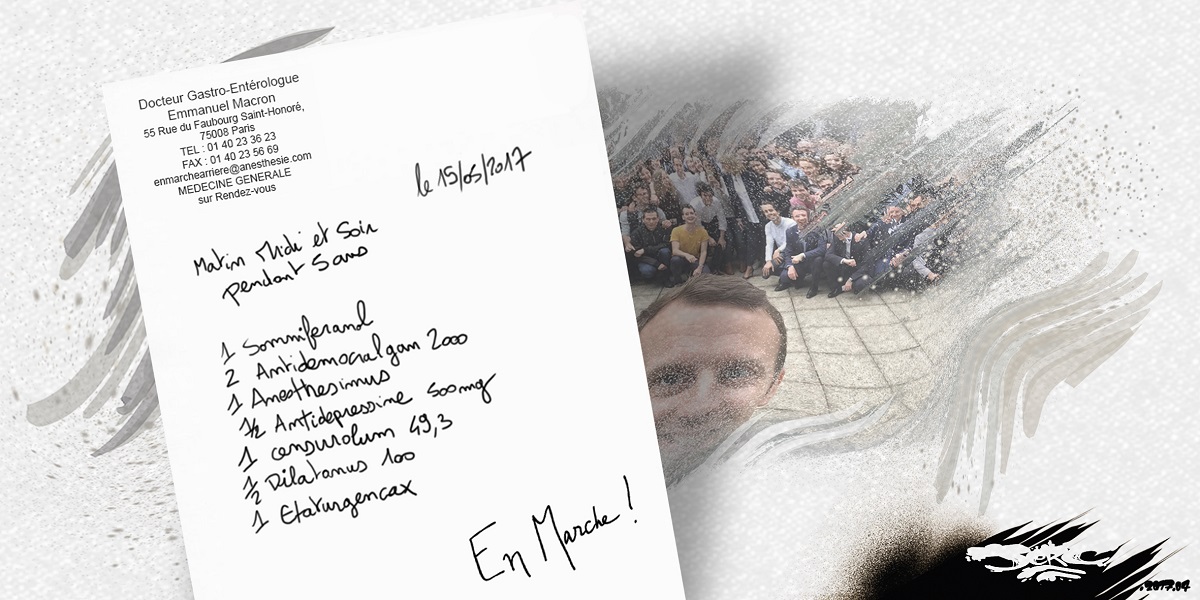 Docteur Gastro-Entérologue
Emmanuel Macron
55 Rue du Faubourg Saint-Honoré,
75008 Paris
TEL : 01 40 23 36 23
FAX : 01 40 23 56 69
enmarchearriere@anesthesie.com
MEDECINE GENERALE
sur Rendez-vous
le 15/05/2017
Matin Midi et Soir
pendant 5 ans
1 Somniferand
2 Antidemocralgan 2000
1 Anesthesimus
1/2 Antidepressine 500mg
1 censurolum 49,3
1/2 Dilatanus 100
1 Etaturgencax
En Marche !
.2017.04